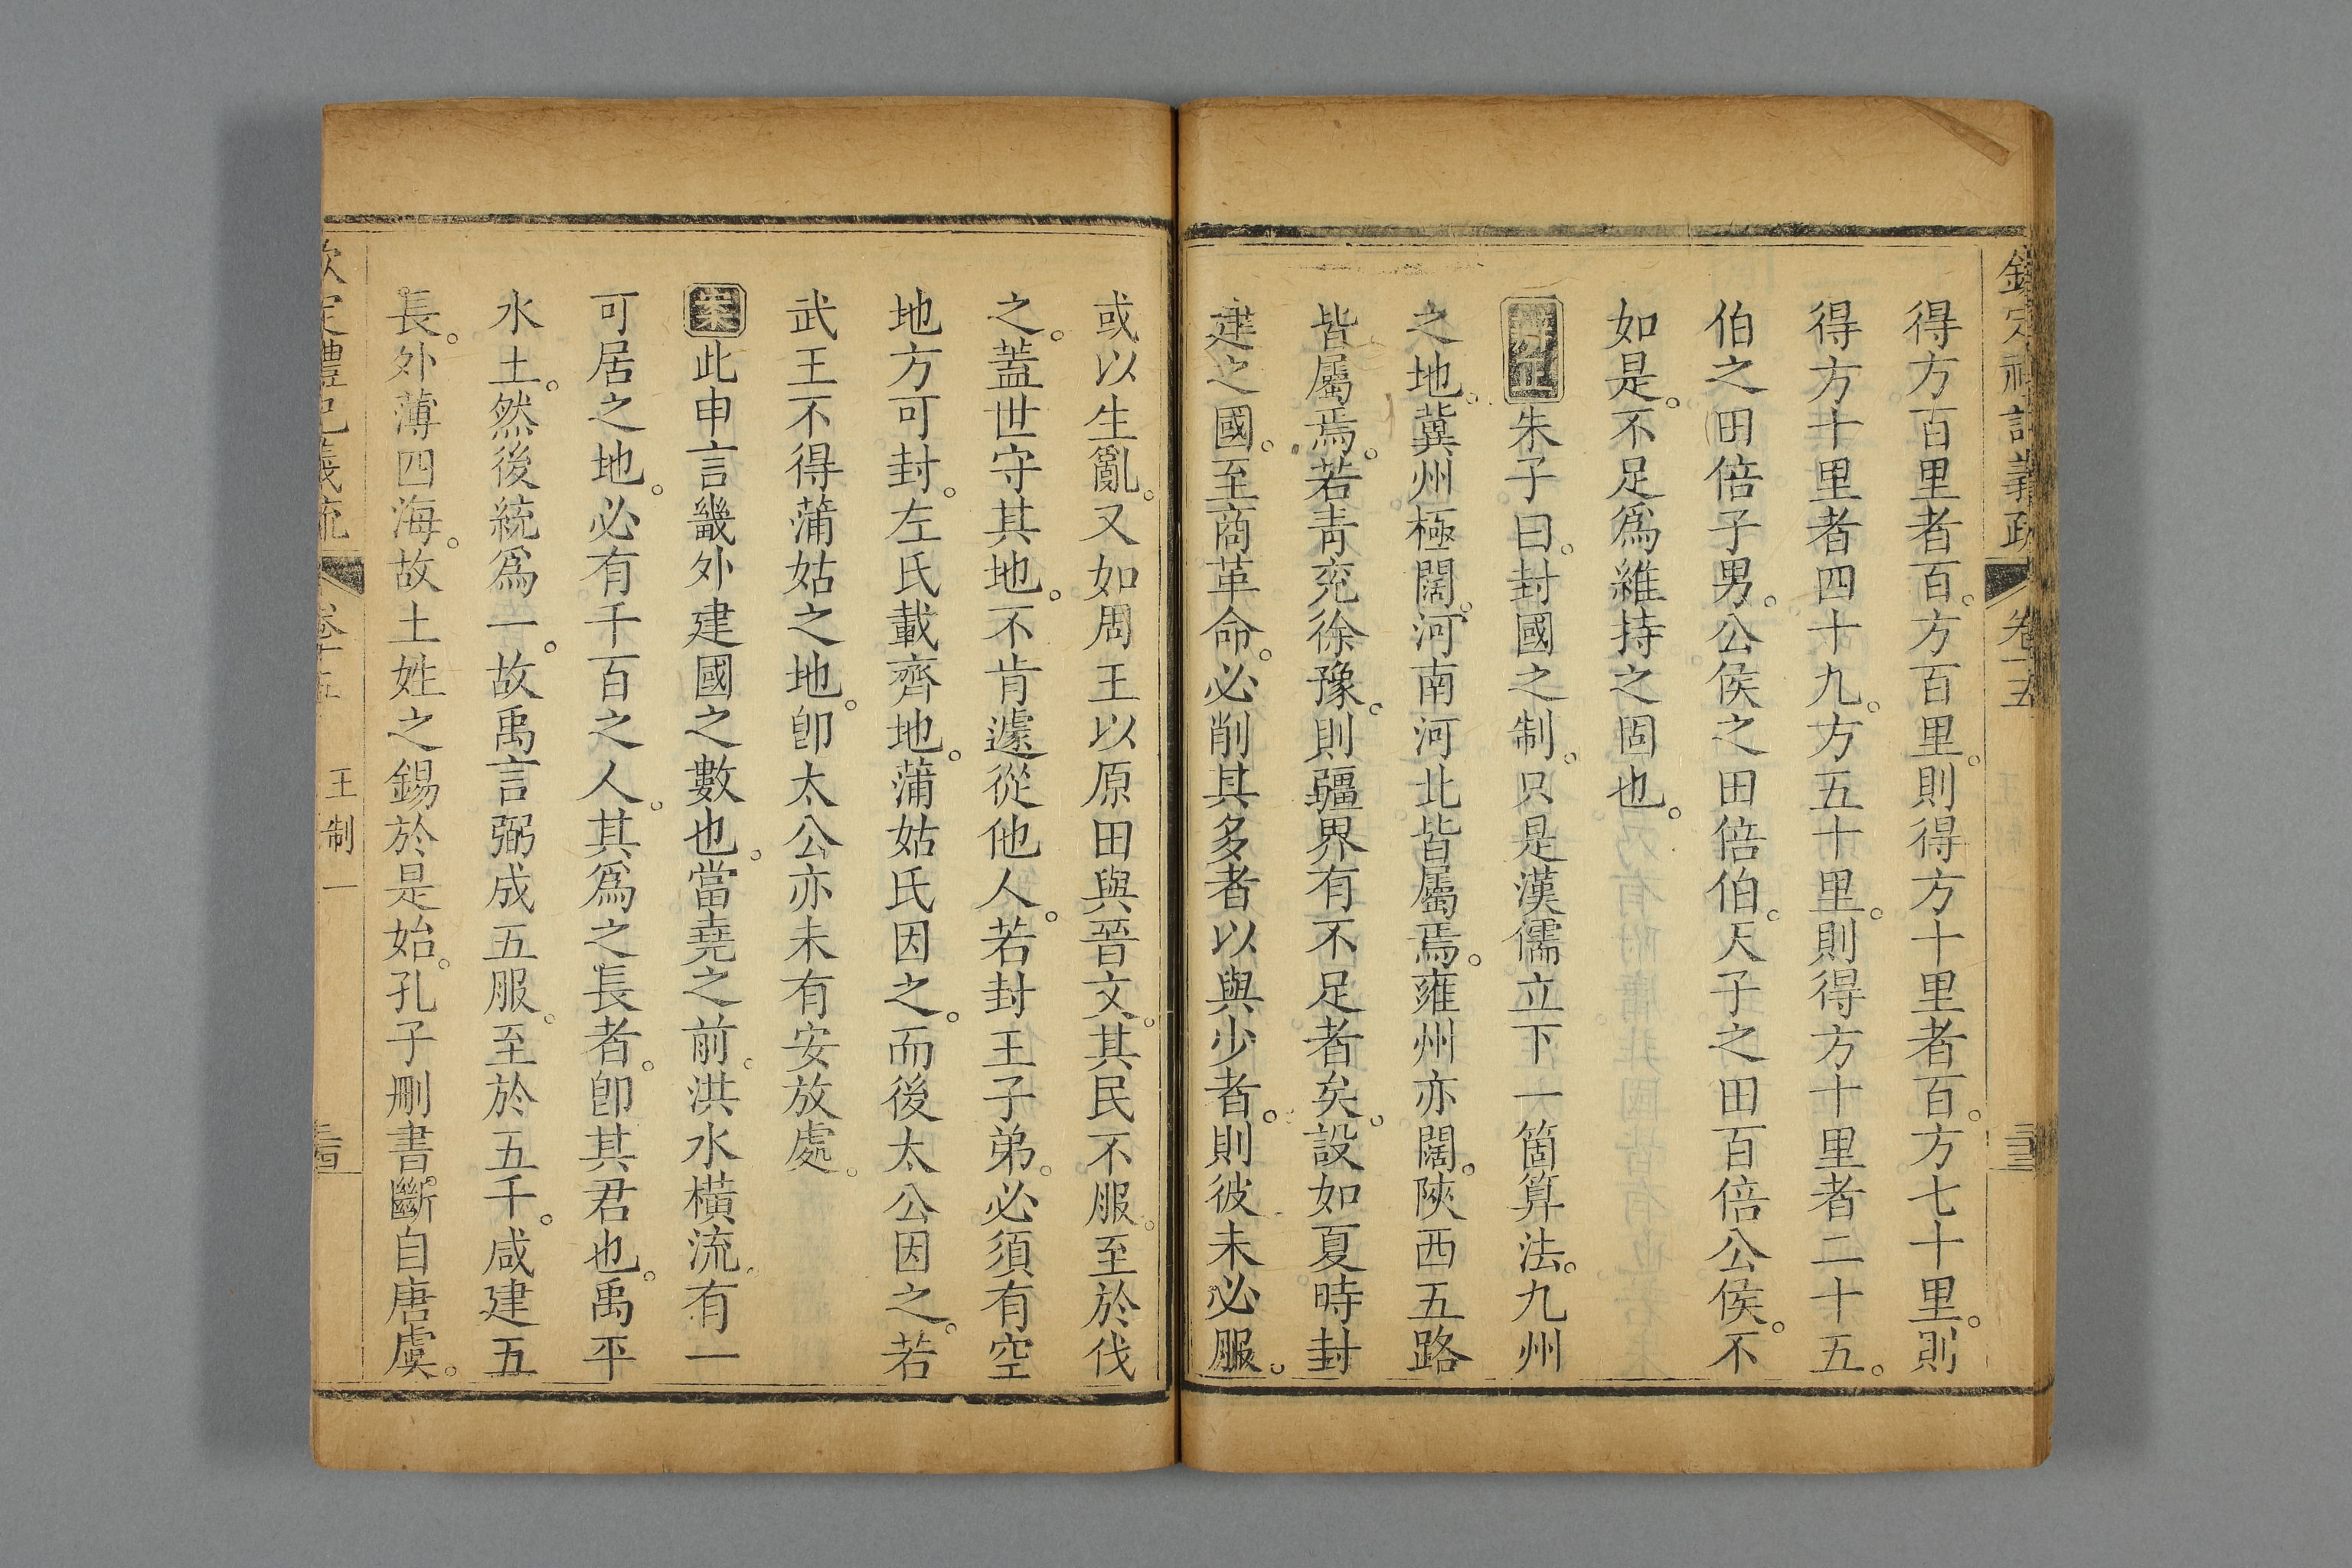 欽定禮記義疏 卷十五
得方百里者百。方百里。則得方十里者百。方七十里。則
得方十里者四十九。方五十里。則得方十里者二十五。
伯之田倍子男。公侯之田倍伯。天子之田百倍公侯。不
如是。不足爲維持之固也。
朱子曰。封國之制。只是漢儒立下一箇算法。九州
之地。冀州極闊。河南河北皆屬焉。雍州亦闊。陝西五路
皆屬焉。若靑兖徐豫。則疆界有不足者矣。設如夏時封
建之國。至商革命。必削其多者以與少者。則彼未必服。
或以生亂。又如周王以原田與晉文。其民不服。至於伐
之。蓋世守其地。不肯遽從他人。若封王子弟。必須有空
地方可封。左氏載齊地。蒲姑氏因之。而後太公因之。若
武王不得蒲姑之地。卽太公亦未有安放處。
案此申言畿外建國之數也。當堯之前。洪水橫流。有一
可居之地。必有千百之人。其爲之長者。卽其君也。禹平
水土。然後統爲一。故禹言弼成五服。至於五千。咸建五
長。外薄四海。故土姓之錫於是始。孔子刪書。斷自唐虞。
欽定禮記義疏 卷十五 王制一